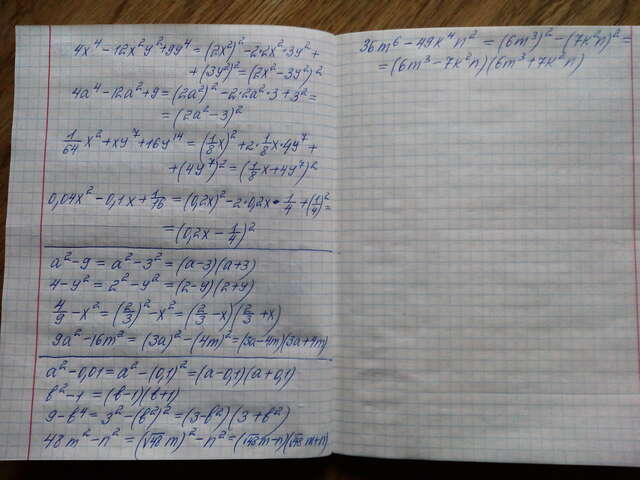 4x⁴-12x²y²+9y⁴=(2x²)²-2·2x²·3y²+
+(3y²)²=(2x²-3y²)²
4a⁴-12a²+9=(2a²)²-2·2a²·3+3²=
=(2a²-3)²
1/64 x²+xy⁷+16y¹⁴=(1/8 x)²+2·1/8 x·4y⁷+
+(4y⁷)²=(1/8 x+4y⁷)²
0,04x²-0,1x+1/16=(0,2x)²-2·0,2x·1/4+(1/4)²=
=(0,2x-1/4)²
a²-9=a²-3²=(a-3)(a+3)
4-y²=2²-y²=(2-y)(2+y)
4/9-x²=(2/3)²-x²=(2/3-x)(2/3+x)
9a²-16m²=(3a)²-(4m)²=(3a-4m)(3a+4m)
a²-0,01=a²-(0,1)²=(a-0,1)(a+0,1)
b²-1=(b-1)(b+1)
9-b⁴=3²-(b²)²=(3-b²)(3+b²)
48m²-n²=(√48 m)²-n²=(√48 m-n)(√48 m+n)
36m⁶-49k⁴n²=(6m³)²-(7k²n)²=
=(6m³-7k²n)(6m³+7k²n)